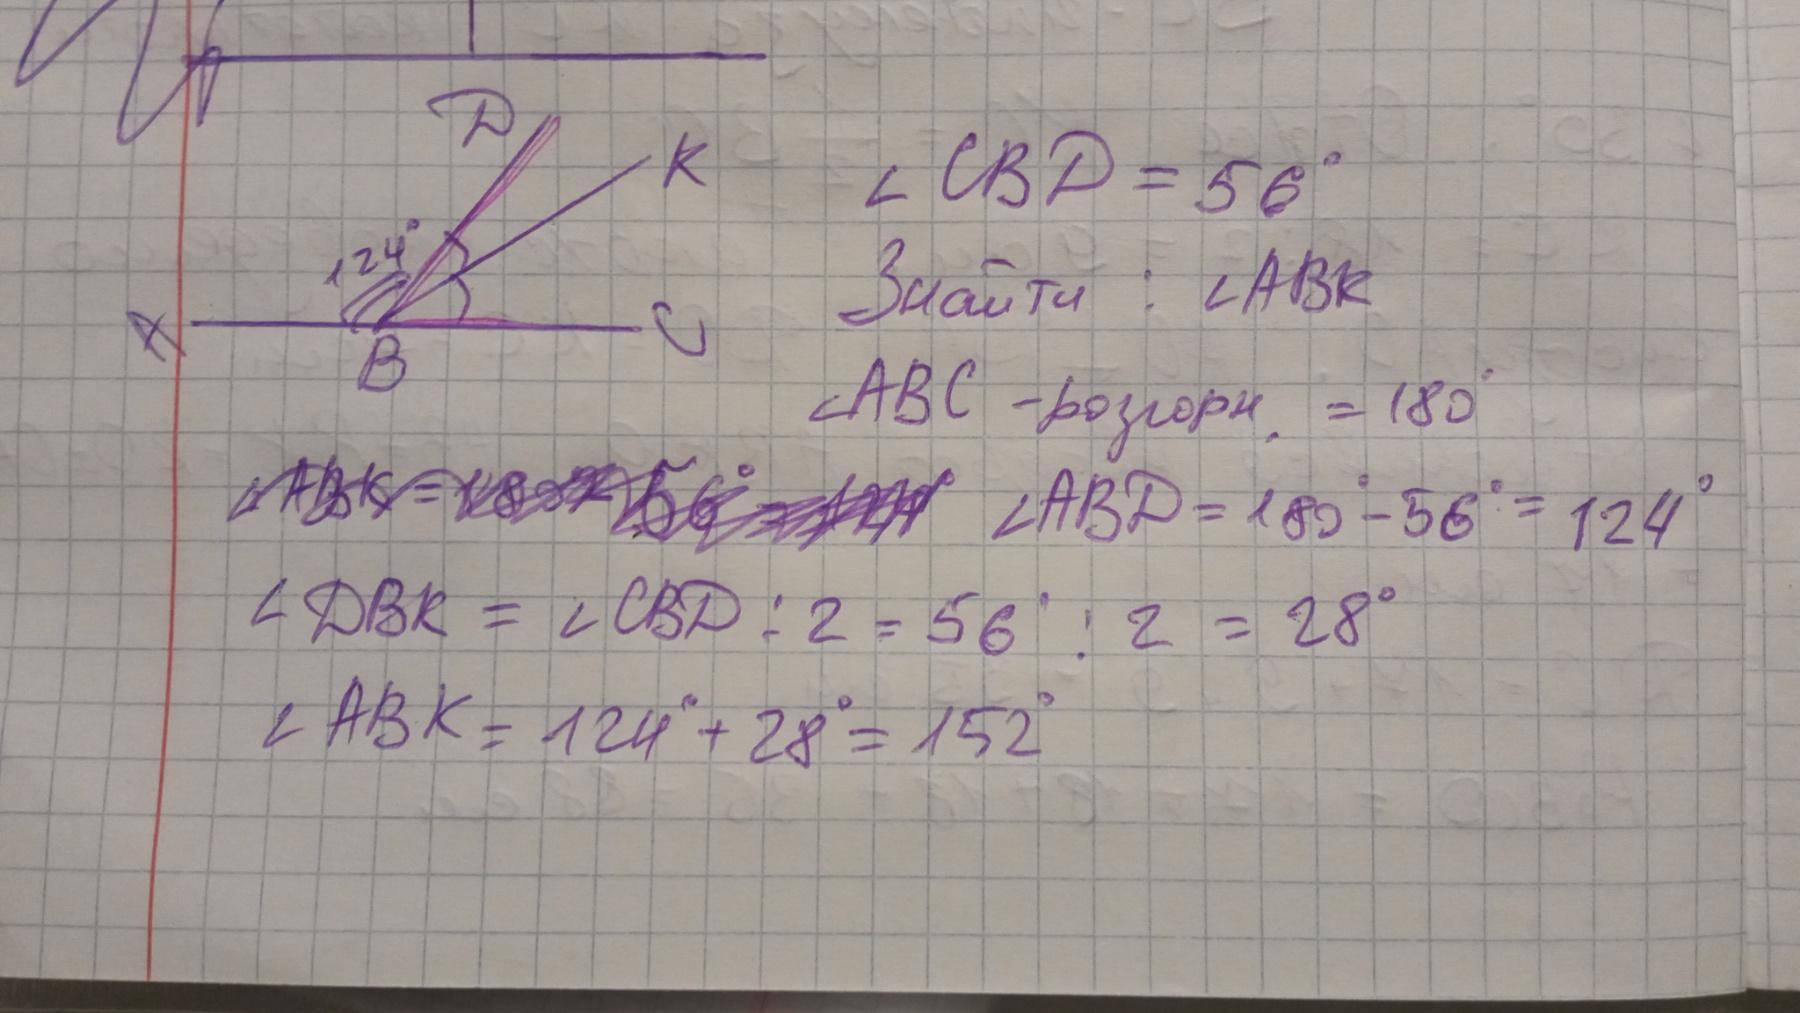 D
K
124°
A
B
C
∠CBD = 56°
Знайти : ∠ABK
∠ABC - розгорн. = 180°
∠ABK = 180° - 56° = 124° ∠ABD = 180° - 56° = 124°
∠DBK = ∠CBD : 2 = 56° : 2 = 28°
∠ABK = 124° + 28° = 152°